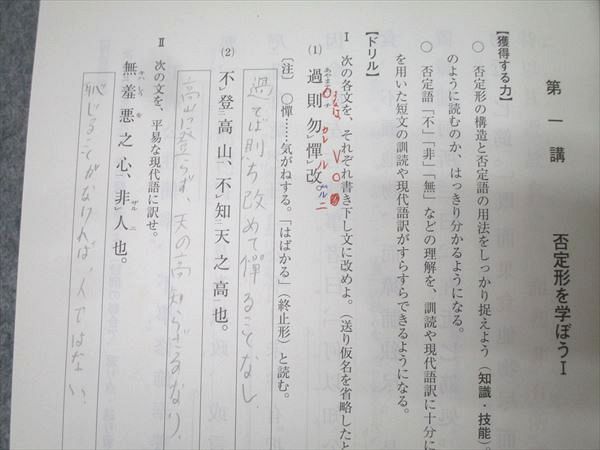 第一講　否定形を学ぼうⅠ
【獲得する力】
○　否定形の構造と否定語の用法をしっかり捉えよう（知識・技能）。
のように読むのか、はっきり分かるようになる。
○　否定語「不」「非」「無」などの理解を、訓読や現代語訳に十分に
を用いた短文の訓読や現代語訳がすらすらできるようになる。
【ドリル】
Ⅰ　次の各文を、それぞれ書き下し文に改めよ。（送り仮名を省略したと
(1)　過則勿レ憚レ改。
〔注〕　○憚……気がねする。「はばかる」（終止形）と読む。
過てば則ち改めて憚ることなし
(2)　不レ登二高山一、不レ知二天之高一也。
高山に登らず、天の高知らざるなり、
Ⅱ　次の文を、平易な現代語に訳せ。
無二羞悪之心一、非レ人也。
恥じることがなければ、人ではない、